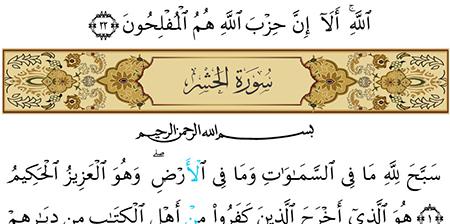 اللَّهِ ۚ أَلَآ إِنَّ حِزْبَ اللَّهِ هُمُ الْمُفْلِحُونَ ﴿٢٢﴾
سُورَةُ الْحَشْرِ
بسم الله الرحمن الرحيم
سَبَّحَ لِلَّهِ مَا فِي السَّمَاوَاتِ وَمَا فِي الْأَرْضِ ۖ وَهُوَ الْعَزِيزُ الْحَكِيمُ
﴿١﴾ هُوَ الَّذِي أَخْرَجَ الَّذِينَ كَفَرُوا مِنْ أَهْلِ الْكِتَابِ مِن دِيَارِهِمْ